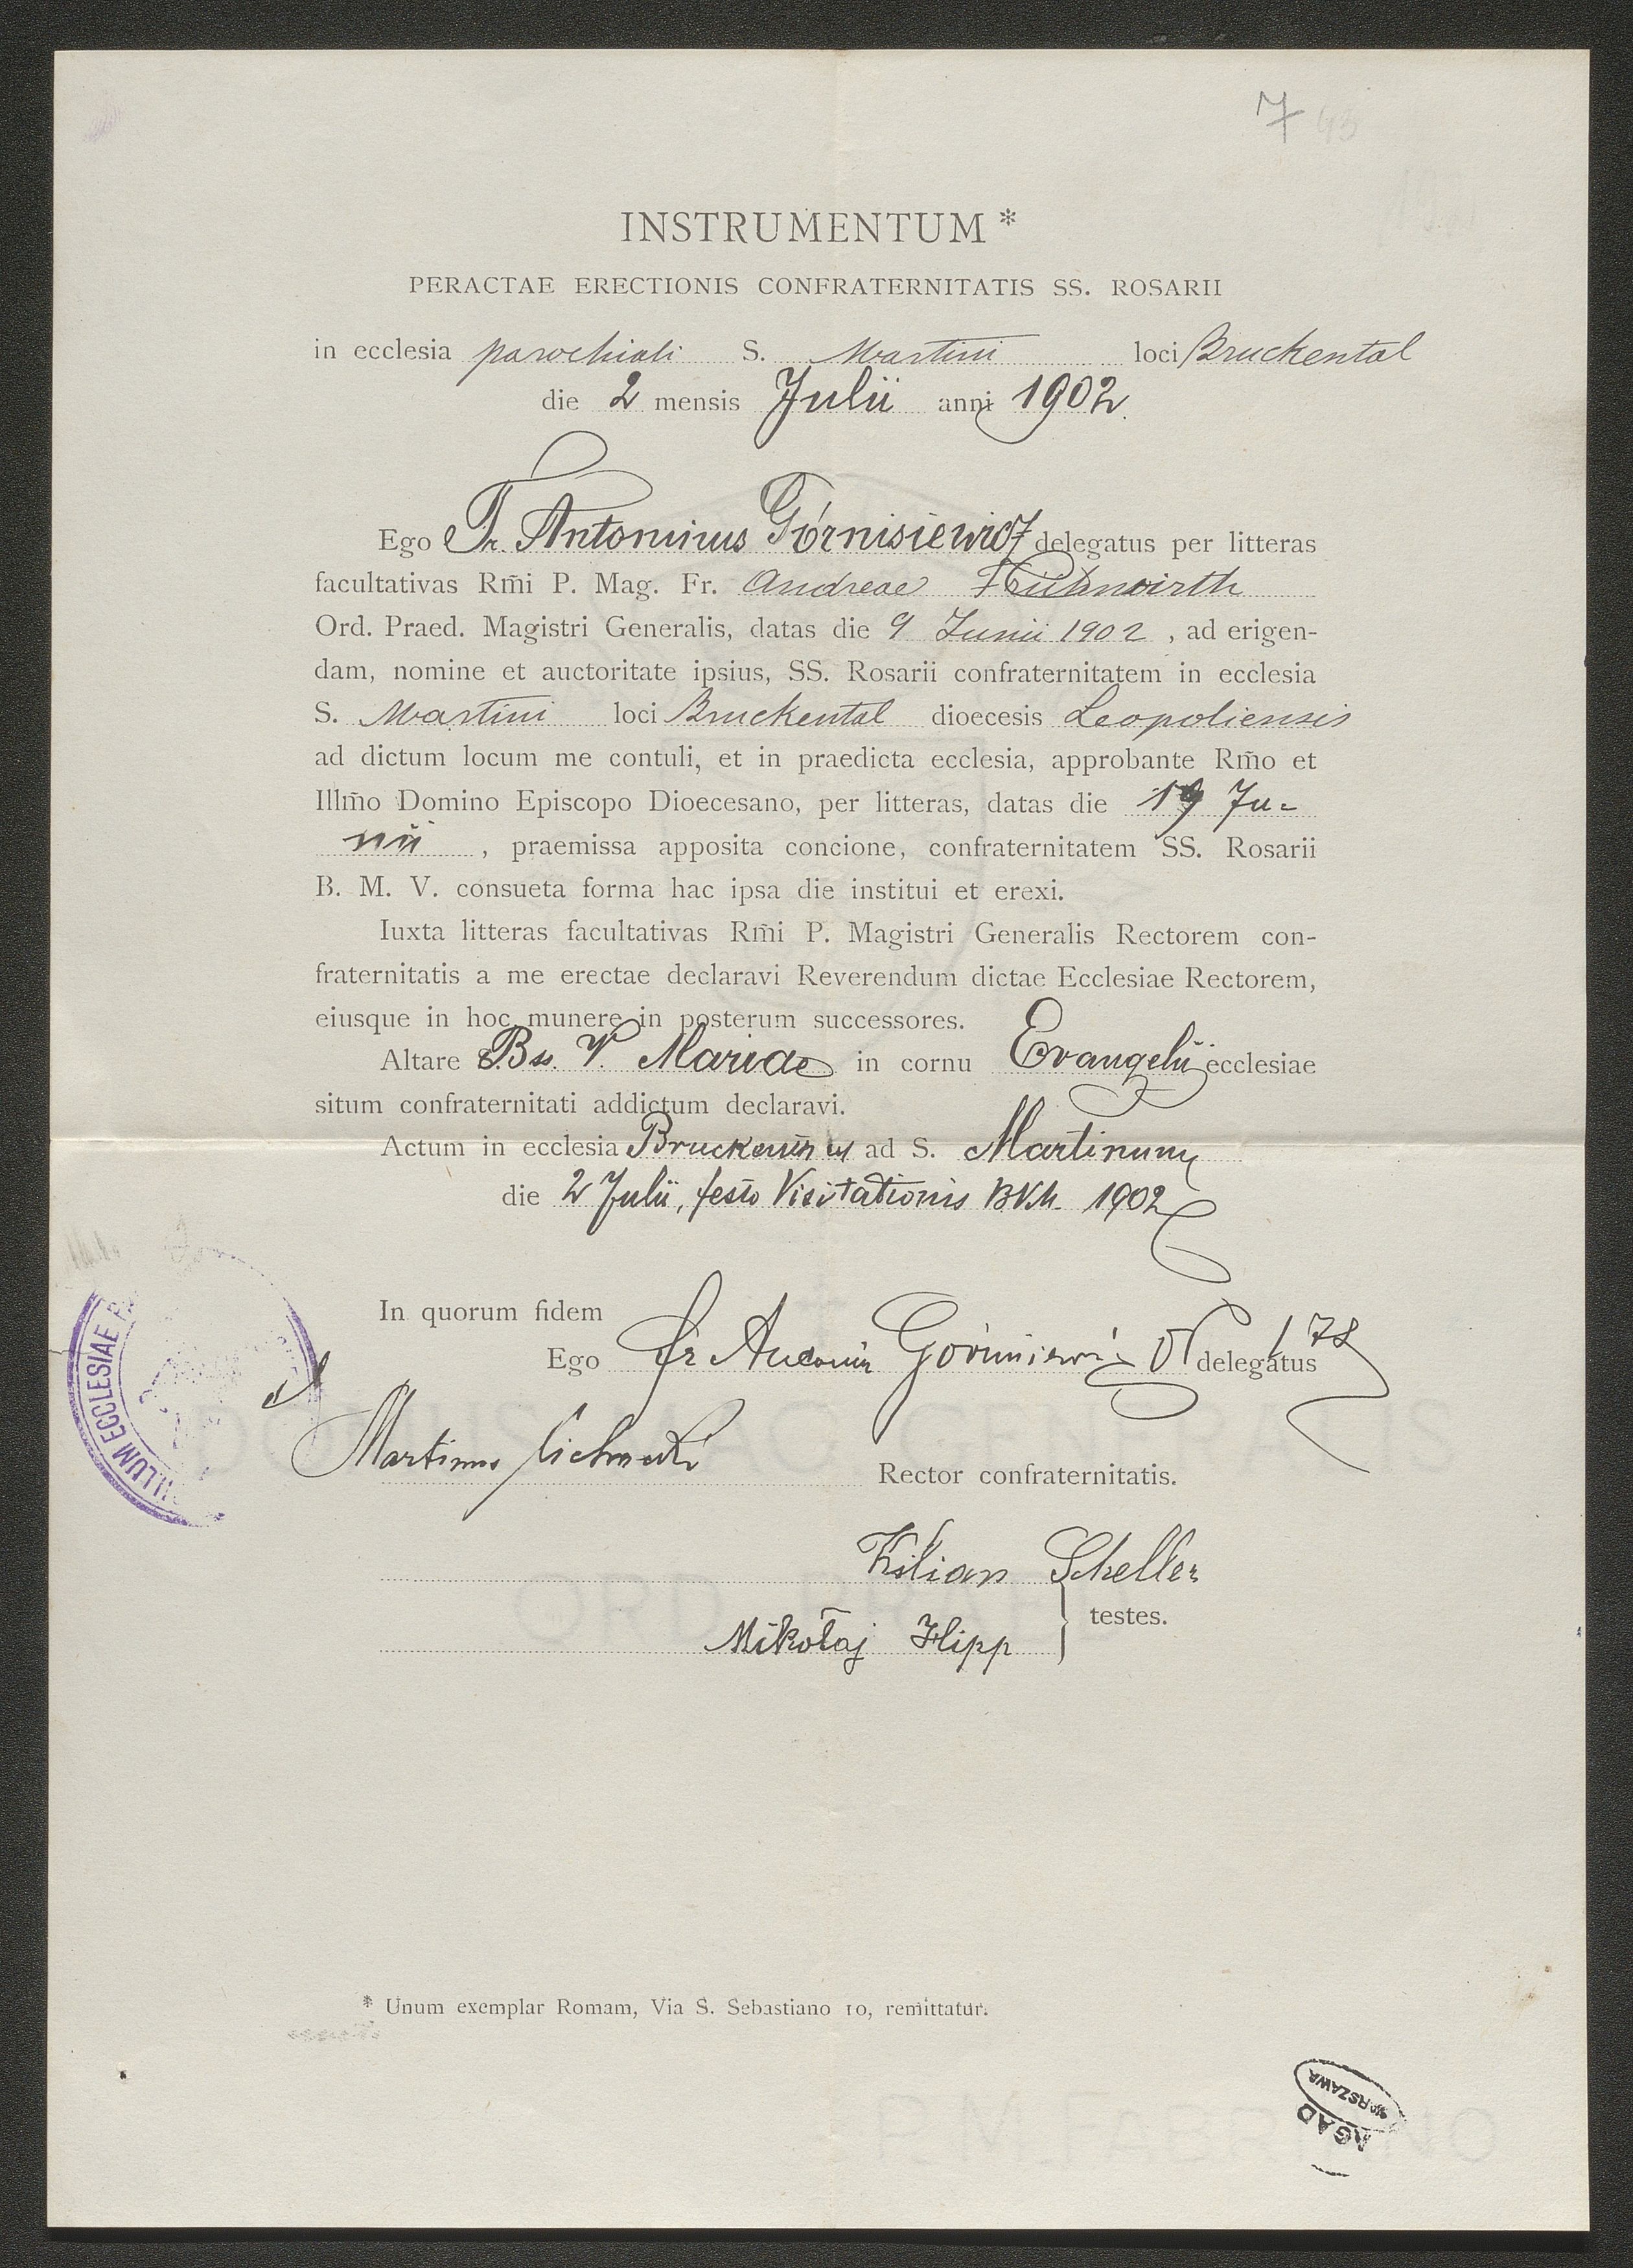 7 45
INSTRUMENTUM *
PERACTAE ERECTIONIS CONFRATERNITATIS SS. ROSARII
in ecclesia parochiali S. Martini loci Bruckental
die 2 mensis Julii anni 1902
Ego Fr. Antoninus Górnisiewicz delegatus per litteras
facultativas Rm̃i P. Mag. Fr. Andreae Frühwirth
Ord. Praed. Magistri Generalis, datas die 9 Junii 1902 , ad erigen-
dam, nomine et auctoritate ipsius, SS. Rosarii confraternitatem in ecclesia
S. Martini loci Bruckental dioecesis Leopoliensis
ad dictum locum me contuli, et in praedicta ecclesia, approbante Rm̃o et
Illm̃o Domino Episcopo Dioecesano, per litteras, datas die 19 Ju=
nii , praemissa apposita concione, confraternitatem SS. Rosarii
B. M. V. consueta forma hac ipsa die institui et erexi.
Iuxta litteras facultativas Rm̃i P. Magistri Generalis Rectorem con-
fraternitatis a me erectae declaravi Reverendum dictae Ecclesiae Rectorem,
eiusque in hoc munere in posterum successores.
Altare S. Bss. V. Mariae in cornu Evangelii ecclesiae
situm confraternitati addictum declaravi.
Actum in ecclesia ad S. Martinum
die 2 Julii, festo Visitationis BVM. 1902
In quorum fidem
Ego Fr Antonin Górnisiewicz OP delegatus
Martinus Rector confraternitatis.
Kilian Scheller
testes.
Mikołaj Hipp
ILLUM ECCLESIAE PA
* Unum exemplar Romam, Via S. Sebastiano 10, remittatur.
AGAD
WARSZAWA